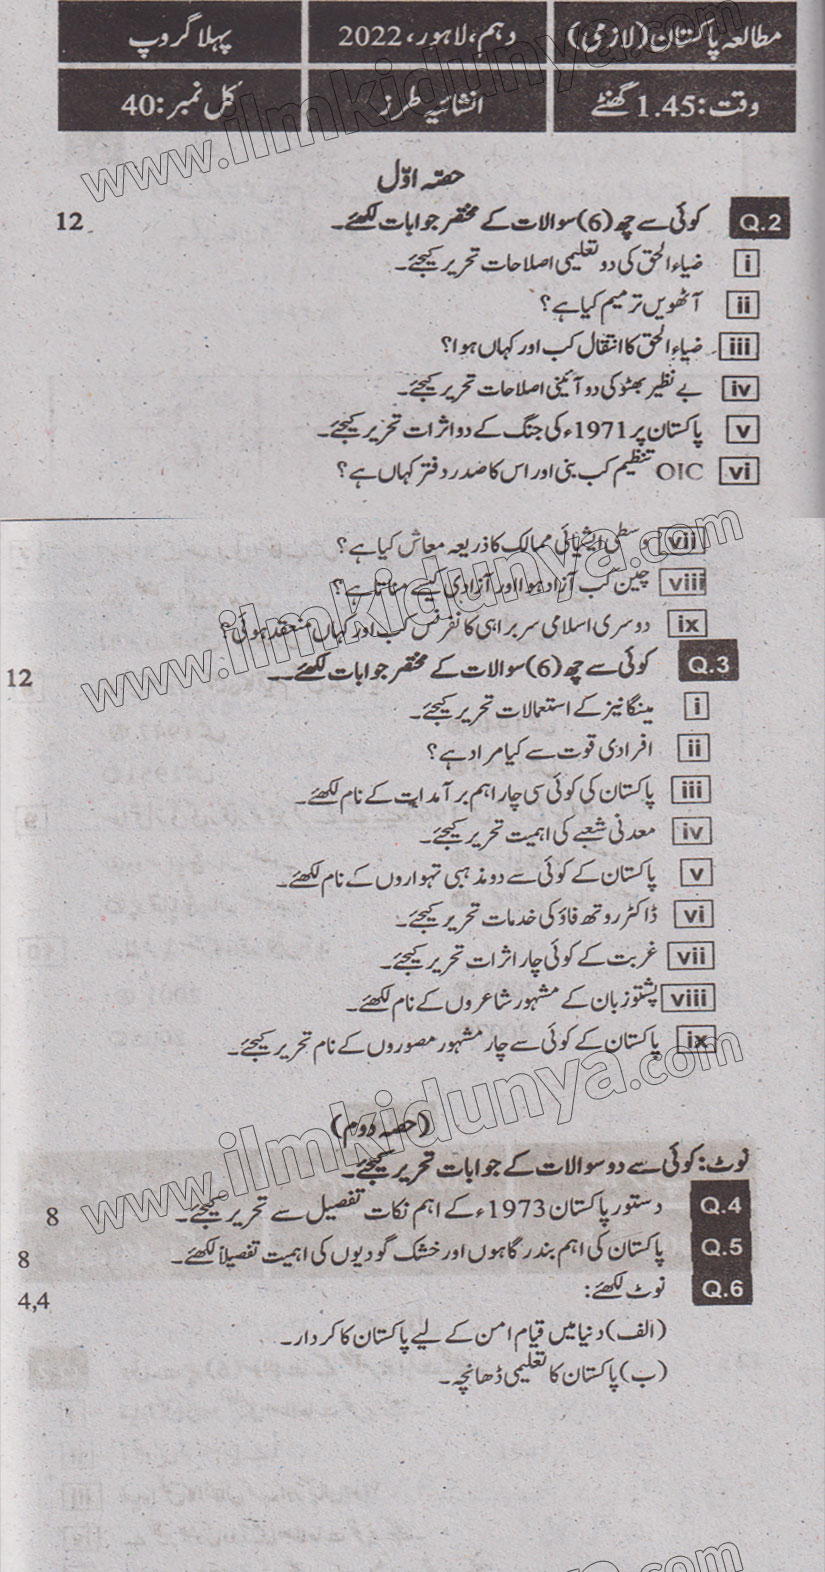 مطالعہ پاکستان (لازمی) دہم، لاہور، 2022 پہلا گروپ
وقت: 1.45 گھنٹے انشائیہ طرز کل نمبر: 40
حصہ اوّل
Q.2 کوئی سے چھ (6) سوالات کے مختصر جوابات لکھئے۔ 12
i ضیاء الحق کی دو تعلیمی اصلاحات تحریر کیجئے۔
ii آٹھویں ترمیم کیا ہے؟
iii ضیاء الحق کا انتقال کب اور کہاں ہوا؟
iv بے نظیر بھٹو کی دو آئینی اصلاحات تحریر کیجئے۔
v پاکستان پر 1971ء کی جنگ کے دو اثرات تحریر کیجئے۔
vi OIC تنظیم کب بنی اور اس کا صدر دفتر کہاں ہے؟
vii وسطی ایشیائی ممالک کا ذریعہ معاش کیا ہے؟
viii چین کب آزاد ہوا اور آزادی کیسے مناتا ہے؟
ix دوسری اسلامی سربراہی کانفرنس کب اور کہاں منعقد ہوئی؟
Q.3 کوئی سے چھ (6) سوالات کے مختصر جوابات لکھئے۔ 12
i مینگانیز کے استعمالات تحریر کیجئے۔
ii افرادی قوت سے کیا مراد ہے؟
iii پاکستان کی کوئی سی چار اہم برآمدات کے نام لکھئے۔
iv معدنی شعبے کی اہمیت تحریر کیجئے۔
v پاکستان کے کوئی سے دو مذہبی تہواروں کے نام لکھئے۔
vi ڈاکٹر روتھ فاؤ کی خدمات تحریر کیجئے۔
vii غربت کے کوئی چار اثرات تحریر کیجئے۔
viii پشتو زبان کے مشہور شاعروں کے نام لکھئے۔
ix پاکستان کے کوئی سے چار مشہور مصوروں کے نام تحریر کیجئے۔
(حصہ دوم)
نوٹ: کوئی سے دو سوالات کے جوابات تحریر کیجئے۔
Q.4 دستور پاکستان 1973ء کے اہم نکات تفصیل سے تحریر کیجئے۔ 8
Q.5 پاکستان کی اہم بندرگاہوں اور خشک گودیوں کی اہمیت تفصیلاً لکھئے۔ 8
Q.6 نوٹ لکھئے: 4,4
(الف) دنیا میں قیام امن کے لیے پاکستان کا کردار۔
(ب) پاکستان کا تعلیمی ڈھانچہ۔
www.ilmkidunya.com
www.ilmkidunya.com
www.ilmkidunya.com